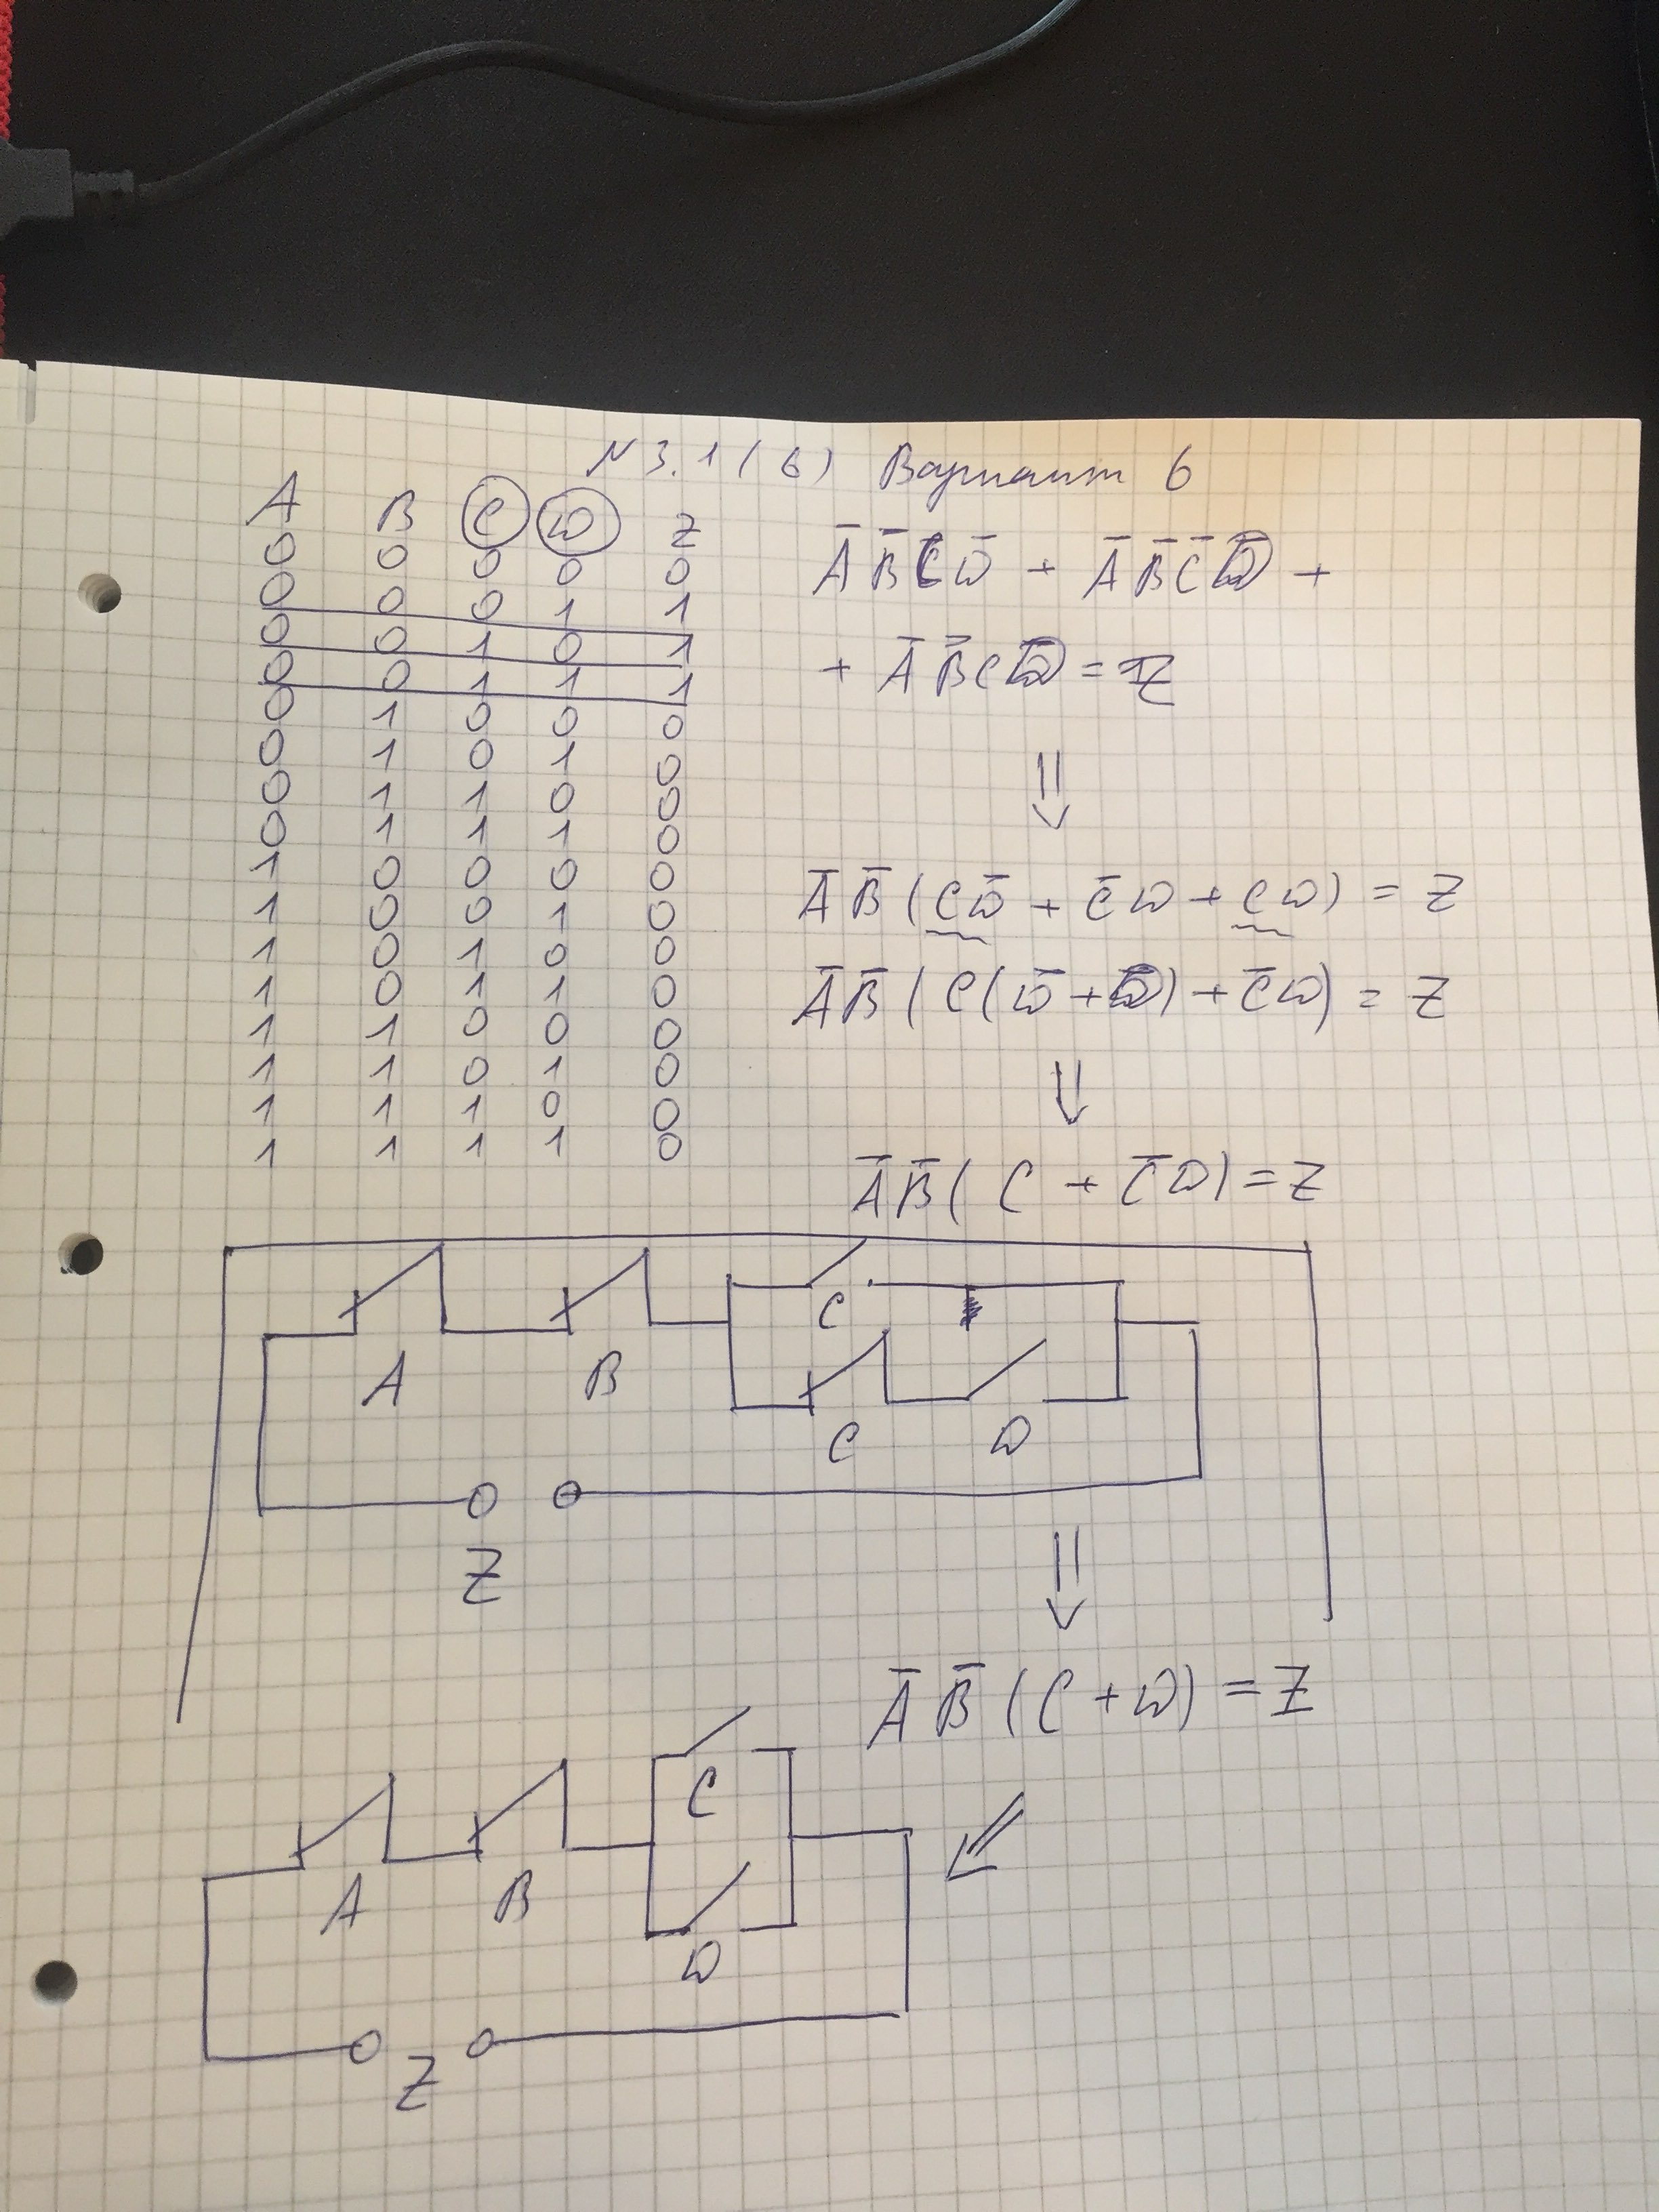 N 3.1 (6) Вариант 6
A B C D Z
0 0 0 0 0
0 0 0 1 1
0 0 1 0 1
0 0 1 1 1
0 1 0 0 0
0 1 0 1 0
0 1 1 0 0
0 1 1 1 0
1 0 0 0 0
1 0 0 1 0
1 0 1 0 0
1 0 1 1 0
1 1 0 0 0
1 1 0 1 0
1 1 1 0 0
1 1 1 1 0
A̅ B̅ C D̅ + A̅ B̅ C̅ D +
+ A̅ B̅ C D = Z
⇓
A̅ B̅ ( C D̅ + C̅ D + C D ) = Z
A̅ B̅ ( C ( D̅ + D ) + C̅ D ) = Z
⇓
A̅ B̅ ( C + C̅ D ) = Z
A B C
C D
Z
⇓
A̅ B̅ ( C + D ) = Z
C
A B
D
Z